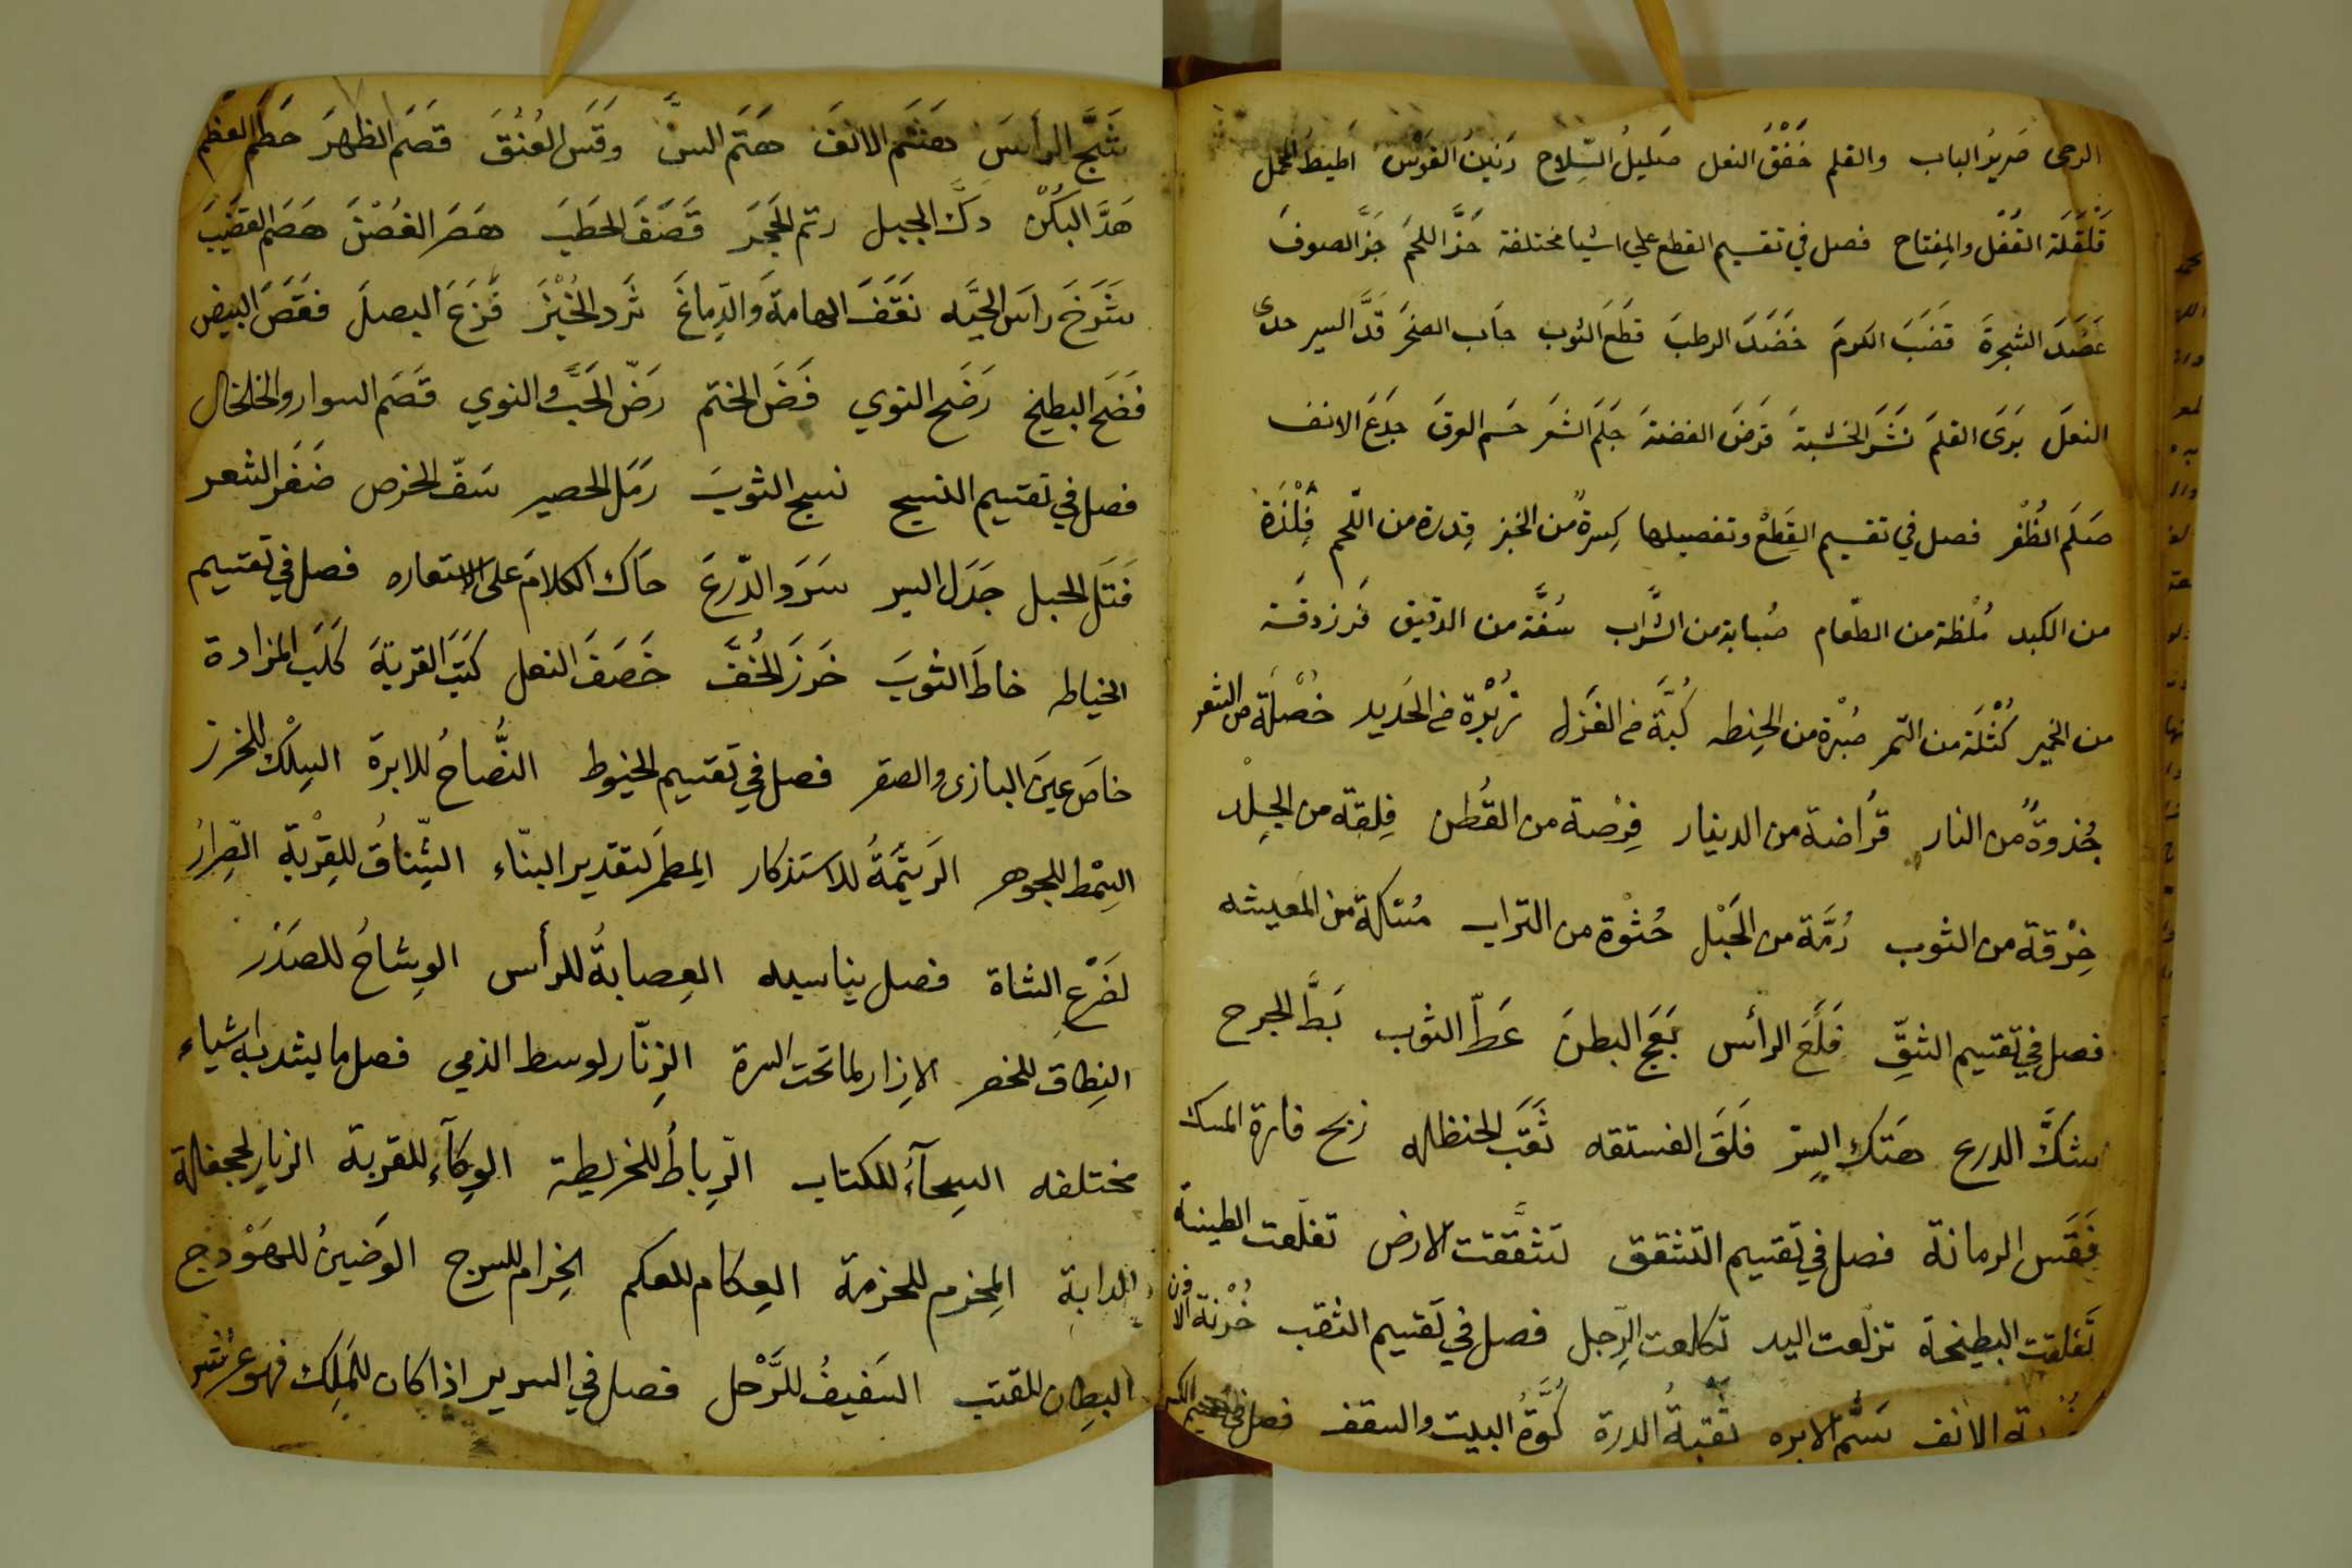 الرحى صَرِيرُ الباب والقلم خَفْقُ النعل صَليلُ السِّلاح رَنينُ القَوْس اَطيطُ المحمل
قَلْقَلَة القُفْل والمِفتاح فصل في تقسيم القطع علي اشيا مختلفة حَزَّ اللحمَ جَزَّ الصوفَ
عَضَدَ الشجرةَ قَضَبَ الكرمَ خَضَدَ الرطبَ قطَعَ الثوب جاَب الصخرَ قَدَّ السير حذى
النعلَ بَرَى القلمَ نَشَرَ الخشبةَ قَرضَ الفضةَ جَلَمَ الشعَر حَسم العرقَ جَدَعَ الانف
صَلَم الظُفْر فصل في تقسيم القِطَعْ وتفصيلها كِسرةٌ من الخبز قِدرة من اللّحم فِلْذَة
من الكبد مُلْظة من الطّعام صُبابة من الشّراب سُفَّة من الدقيق فَرزدقَة
من الخمير كُتْلَة من التمر صُبْرة من الحِنطه كُبَّة من الغَزل زُبْرة من الحَديد خُصْلَة من الشعر
جُذوةٌ من النار قُراضة من الدينار فِرْصة من القُطن فِلقة من الجِلْد
خِرْقة من الثوب رُمَّة من الحَبْل حُثوْة من التراب مُسْكة من المَعيشه
فصل في تقسيم الشقِّ فَلَعَ الرأس بَعَج البطنَ عَطّ الثوب بَطَّ الجرح
شكَّ الدرع هَتك السِتر فَلَقَ الفستقه ثَقَبَ الحنظله ذبح فارة المسك
فَقَس الرمانة فصل في تقسيم التشقق تشَّققت الارض تفلّعت الطينة
تَفلقت البطيخة تزلّعت اليد تكلعت الرِّجل فصل في تقسيم الثقب خُرْبَة الاذن
الانف سَمُّ الابره ثُقبةُ الدرة كُوَّةُ البيت والسقف فصل في تقسيم الكسر
شَجَّ الرأسَ هَشَم الانفَ هَتَم السنَّ وَقَسَ العُنُقَ قصَمَ الظهرَ حَطَم العظْم
هَدَّ الرُكْن دكَّ الجبل رتم الحجرَ قَصَفَ الحَطَبَ هَصَرَ الغُصْنَ هَصَم القَضيبَ
شَدَخَ راسَ الحيَّه نَقَفَ الهامةَ والدِّماغَ ثَرَد الخُبْزَ فَزَغَ البصلَ فقَصَ البيض
فَضَخَ البطيخ رَضَخ النوي فَضَ الختم رَضّ الحَبَّ والنوي قَصَم السوار والخلخال
فصل في تقسيم النسج نسج الثوبَ رَمَل الحصير سَفّ الخوص ضَفَر الشعر
فَتَل الحبل جَدَل السير سَرَد الدّرعَ حَاك الكلامَ على الاستعاره فصل في تقسيم
الخياطه خاطَ الثوبَ خَرزَ الخُفَّ خَصَفَ النعل كَتَبَ القربةَ كَلَبَ المزادة
خاصَ عينَ البازى والصقر فصل في تقسيم الخيوط النِّصاحُ للابرة السِلْك للخرز
السِمْط للجوهر الرَتيمَةُ للاستذكار المِطمَر لتقدير البنّاء الشِّناقُ للقِرْبة الصِّرارُ
لضَرْعِ الشاة فصل يناسبه العِصابةُ للرأس الوِشاحُ للصَدْر
النِطاق للخصر الاِزار لما تحت السرة الزِنّار لوسط الذمي فصل ما يشد به اشياء
مختلفه السِحآءُ للكتاب الرِّباطُ للخريطة الوِكآءِ للقربة الزيار لجحفلة
الدابة المِخزم للحزمة العِكام للعكم الحِزام للسرج الوَضينُ للهَوْدج
البِطان للقتب السَفيفُ للرَّحل فصل في السرير اذا كان للمَلِك فهو عرش